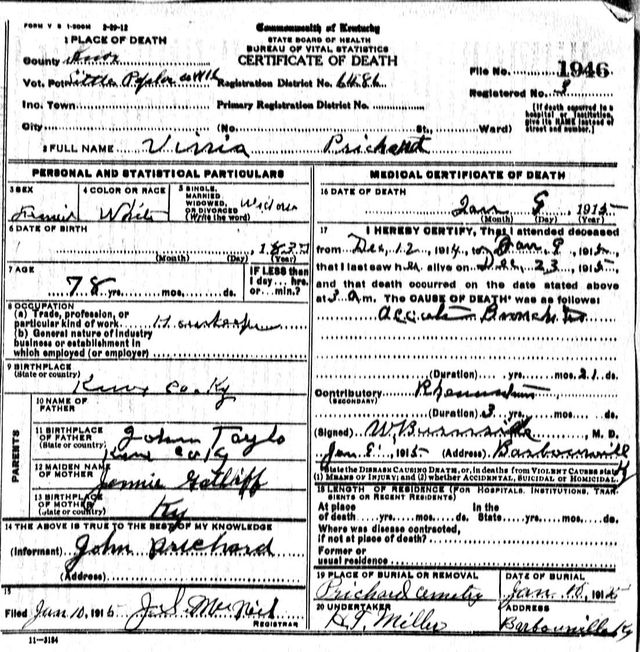 FORM V S 1-500M 2-29-12
Commonwealth of Kentucky
STATE BOARD OF HEALTH
BUREAU OF VITAL STATISTICS
CERTIFICATE OF DEATH
1 PLACE OF DEATH
County Knox
Vot. Pct Little Poplar Registration District No. 6486
File No. 1946
Inc. Town Primary Registration District No.
Registered No. 8
[If death occurred in a hospital or institution, give its NAME instead of street and number.]
City (No. St., Ward)
2 FULL NAME Vinia Prichard
PERSONAL AND STATISTICAL PARTICULARS
3 SEX
4 COLOR OR RACE White
5 SINGLE, MARRIED WIDOWED, OR DIVORCED (Write the word) Widow
6 DATE OF BIRTH
(Month) (Day) (Year)
7 AGE
78 yrs. mos. ds.
IF LESS than 1 day... hrs. or... min.?
8 OCCUPATION
(a) Trade, profession, or particular kind of work Housekeeper
(b) General nature of industry business or establishment in which employed (or employer)
9 BIRTHPLACE
(State or country) Knox Co Ky
PARENTS
10 NAME OF FATHER
John Taylo
11 BIRTHPLACE OF FATHER (State or country) Knox Co Ky
12 MAIDEN NAME OF MOTHER Jennie Gatliff
13 BIRTHPLACE OF MOTHER (State or country) Ky
14 THE ABOVE IS TRUE TO THE BEST OF MY KNOWLEDGE
(Informant) John Prichard
(Address)
15
Filed Jan 10, 1915 J.S. McNeil
REGISTRAR
11-3184
MEDICAL CERTIFICATE OF DEATH
16 DATE OF DEATH
Jan 9, 1915
(Month) (Day) (Year)
17 I HEREBY CERTIFY, That I attended deceased
from Dec 12, 1914, to Jan 9, 1915
that I last saw her alive on Dec 23, 1915
and that death occurred on the date stated above
at 3 a m. The CAUSE OF DEATH* was as follows:
Bronchitis
(Duration) yrs. mos. 21 ds.
Contributory Rheumatism
(SECONDARY)
(Duration) 3 yrs. mos. ds.
(Signed) W Burnside, M. D.
Jan 9, 1915 (Address) Barbourville Ky
*State the DISEASE CAUSING DEATH, or, in deaths from VIOLENT CAUSES state (1) MEANS OF INJURY; and (2) whether ACCIDENTAL, SUICIDAL or HOMICIDAL.
18 LENGTH OF RESIDENCE (FOR HOSPITALS, INSTITUTIONS, TRANSIENTS OR RECENT RESIDENTS)
At place of death yrs. mos. ds. In the State yrs. mos. ds.
Where was disease contracted, if not at place of death?
Former or usual residence
19 PLACE OF BURIAL OR REMOVAL
Prichard Cemetry
DATE OF BURIAL
Jan 10, 1915
20 UNDERTAKER
H.F. Miller
ADDRESS
Barbourville Ky